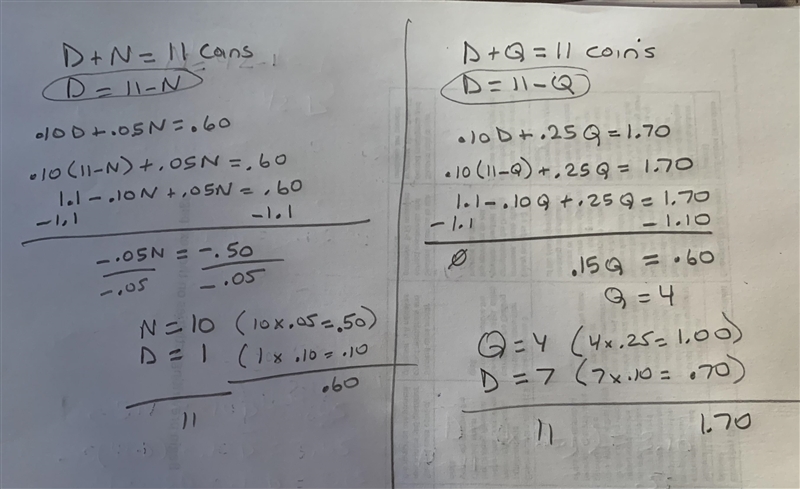 D + N = 11 Cans
D = 11 - N
.10D + .05N = .60
.10(11-N) + .05N = .60
1.1 - .10N + .05N = .60
-1.1 -1.1
-.05N = -.50
-.05 -.05
N = 10 (10 x .05 = .50)
D = 1 (1 x .10 = .10
.60
11
D + Q = 11 coin's
D = 11 - Q
.10D + .25Q = 1.70
.10(11-Q) + .25Q = 1.70
1.1 - .10Q + .25Q = 1.70
-1.1 -1.10
0 .15Q = .60
Q = 4
Q = 4 (4 x .25 = 1.00)
D = 7 (7 x .10 = .70)
11 1.70